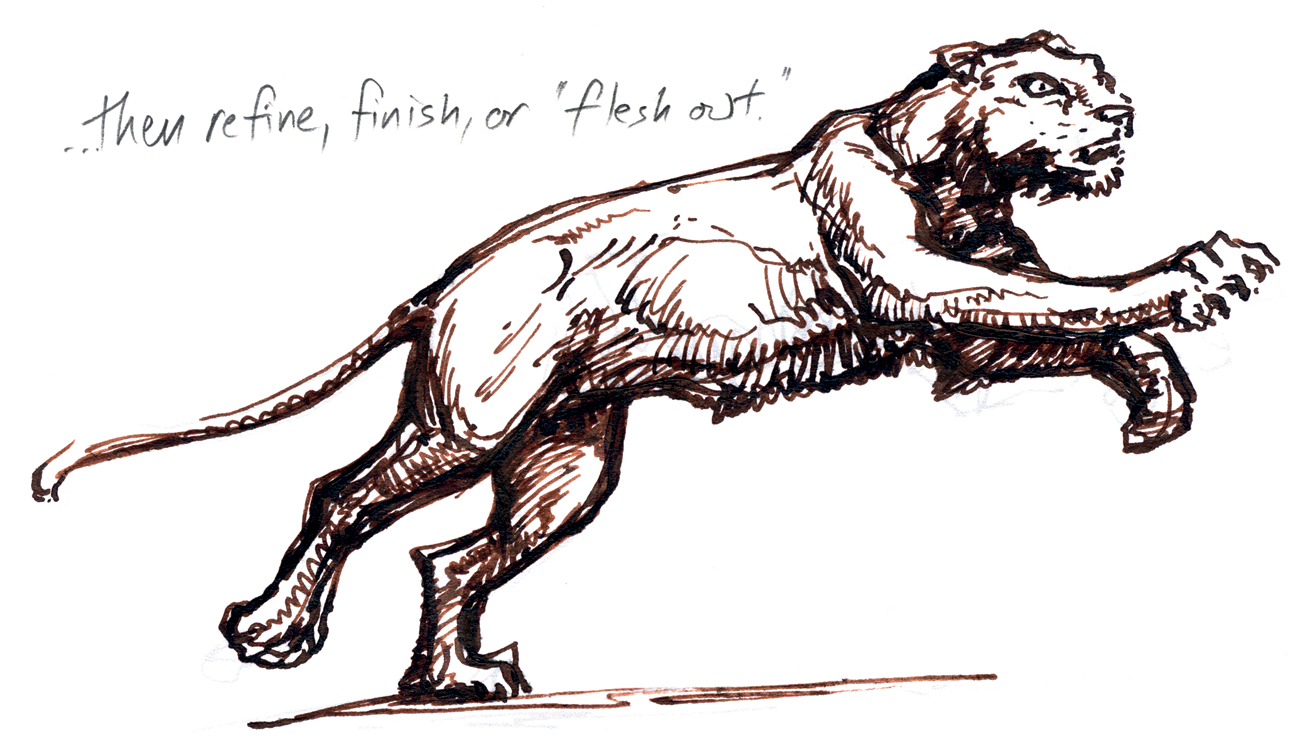 ...then refine, finish, or "flesh out."